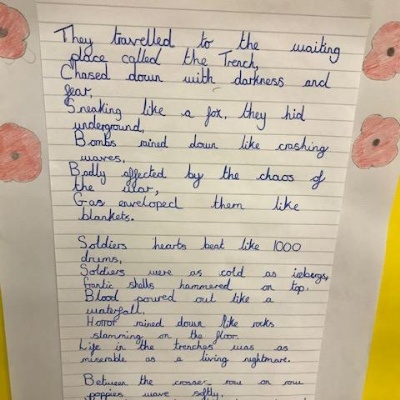 They travelled to the waiting
place called the Trench,
Chased down with darkness and
fear,
Sneaking like a fox, they hid
underground,
Bombs rained down like crashing
waves,
Badly affected by the chaos of
the war,
Gas enveloped them like
blankets.
Soldiers hearts beat like 1000
drums,
Soldiers were as cold as icebergs,
frantic shells hammered on top.
Blood poured out like a
waterfall,
Horror rained down like rocks
slamming on the floor.
Life in the trenches was as
miserable as a living nightmare.
Between the crosser row on row
poppies wave softly.